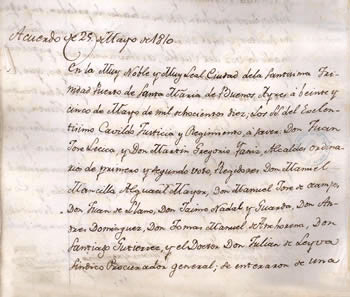 Acuerdo de 25 de Mayo de 1810
En la Muy Noble y Muy Leal Ciudad de la Santissima Tri-
nidad Puerto de Santa Maria de Buenos Ayres, á veinte y
cinco de Mayo de mil ochocientos diez; los SS. del Exelen-
tisimo Cavildo Justicia y Regimiento, á saver: Don Juan
José Lezica, y Don Martin Gregorio Yaniz, Alcaldes ordina-
rios de primero y segundo voto; Regidores Don Manuel
Mancilla Alguacil Mayor, Don Manuel José de ocampo,
Don Juan de Llano, Don Jaime Nadal y Guarda, Don An-
dres Dominguez, Don Tomas Manuel de Anchorena, Don
Santiago Gutierrez, y el Doctor Don Julian de Leyva
Sindico Procurador general; se enteraron de una